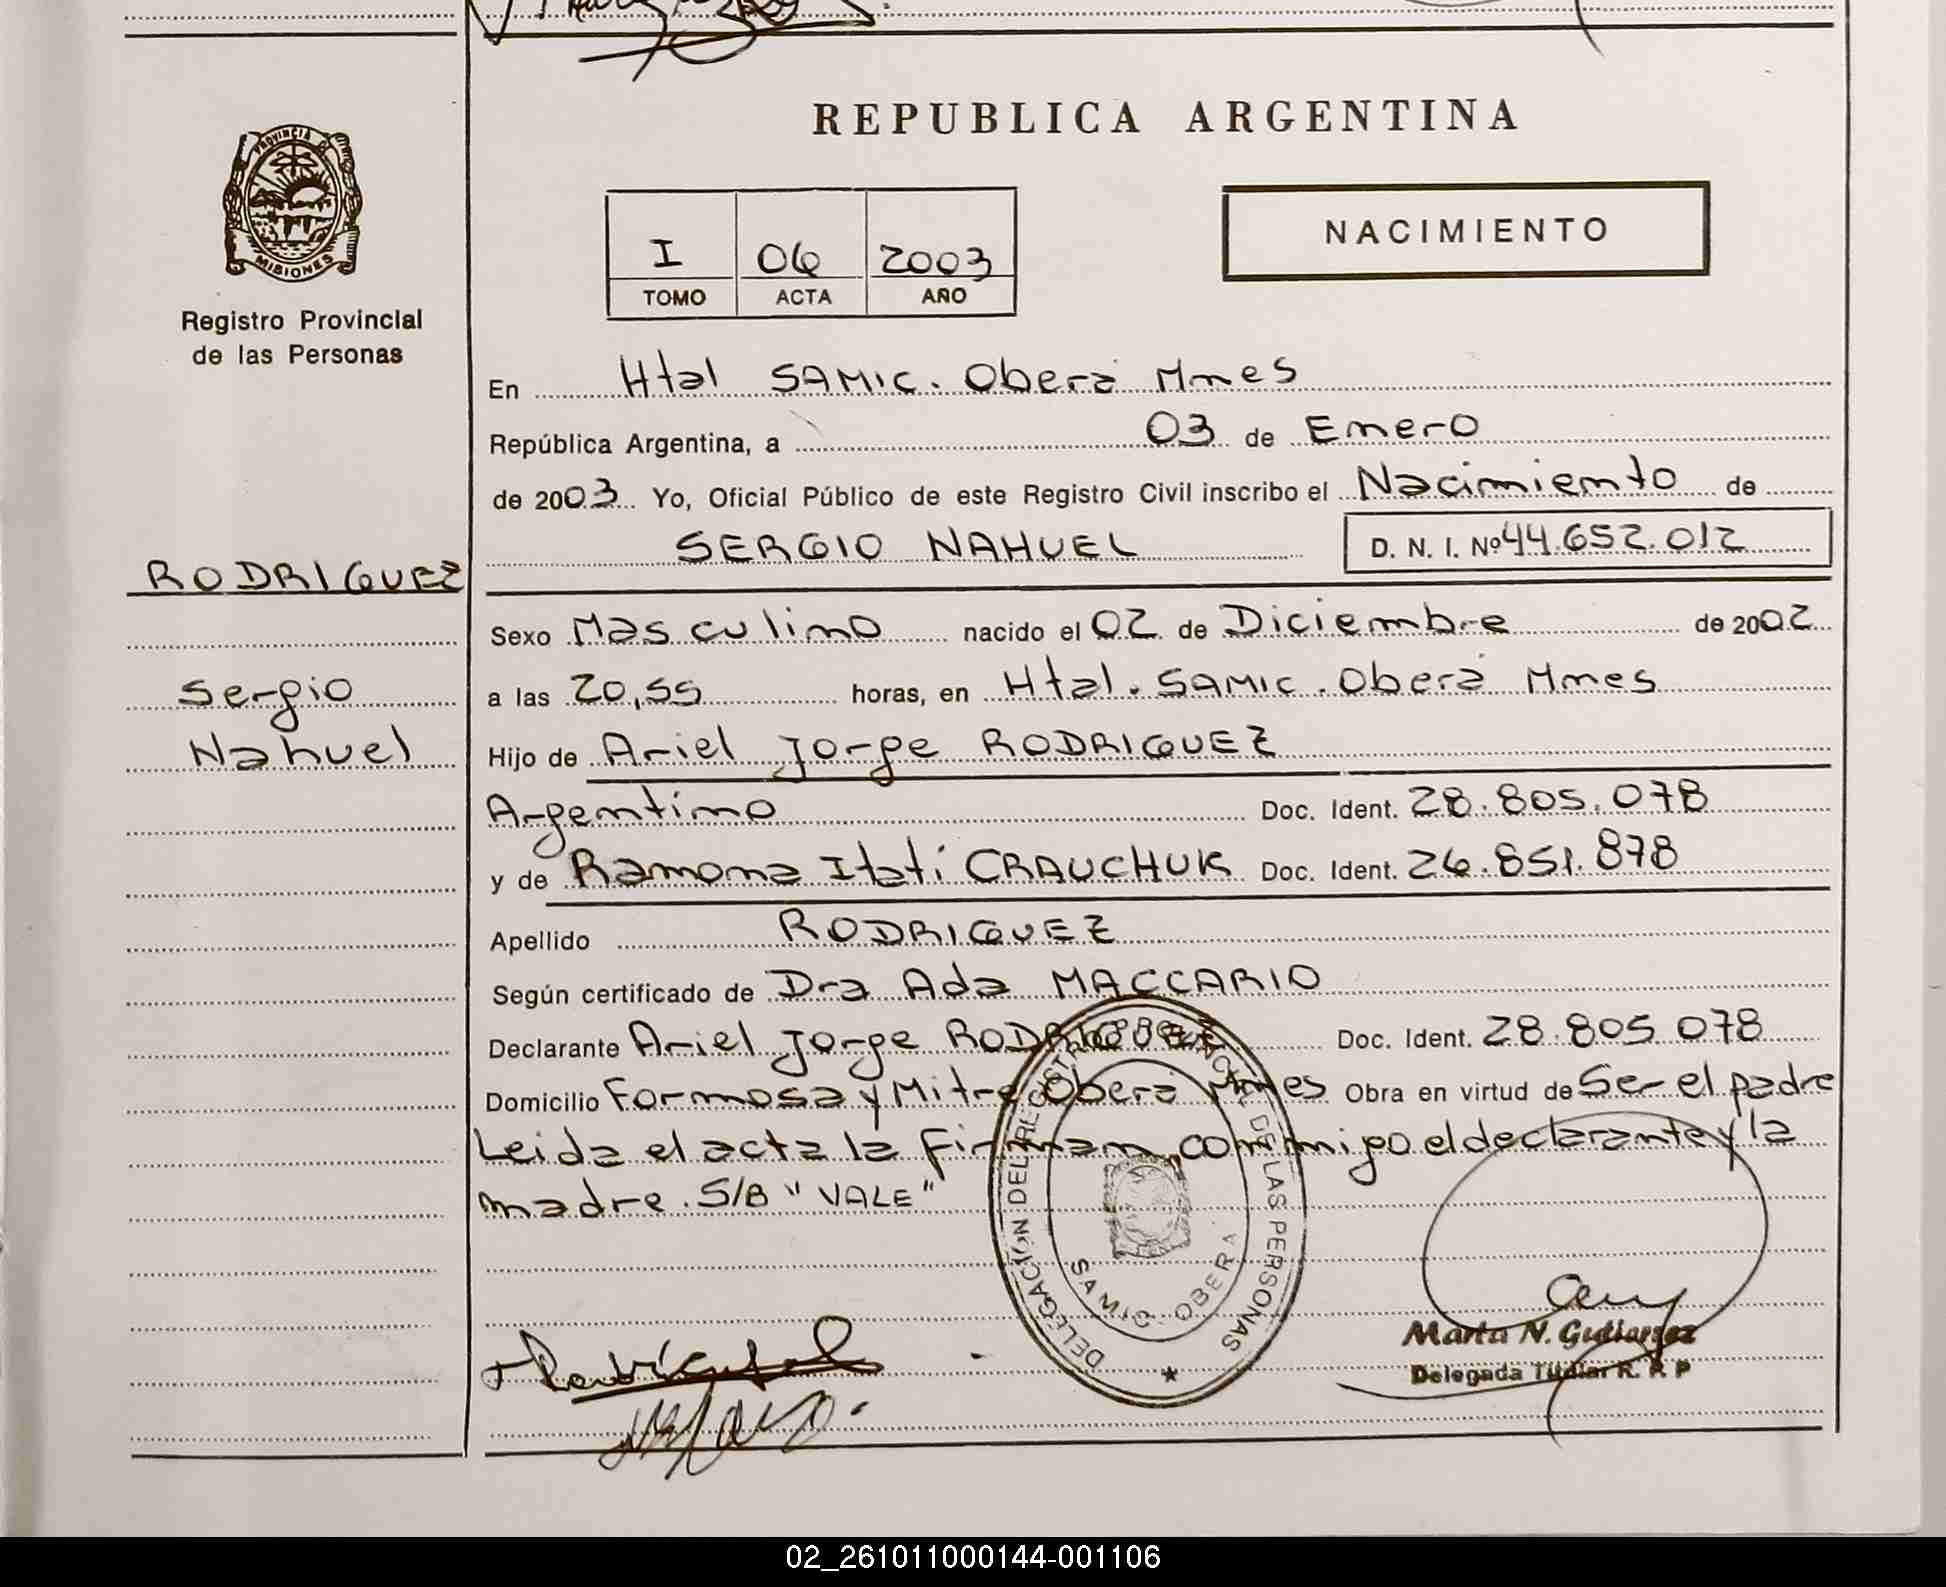 REPUBLICA ARGENTINA
PROVINCIA DE
MISIONES
Registro Provincial
de las Personas
I 06 2003
TOMO ACTA AÑO
NACIMIENTO
En Htal SAMIC. Oberá Mnes
República Argentina, a 03 de Enero
de 2003 Yo, Oficial Público de este Registro Civil inscribo el Nacimiento de
SERGIO NAHUEL D. N. I. Nº 44.652.012
RODRIGUEZ
Sergio
Nahuel
Sexo Masculino nacido el 02 de Diciembre de 2002
a las 20,55 horas, en Htal. SAMIC. Oberá Mnes
Hijo de Ariel Jorge RODRIGUEZ
Argentino Doc. Ident. 28.805.078
y de Ramona Itatí CRAUCHUK Doc. Ident. 26.851.878
Apellido RODRIGUEZ
Según certificado de Dra Ada MACCARIO
Declarante Ariel Jorge RODRIGUEZ Doc. Ident. 28.805.078
Domicilio Formosa y Mitre Oberá Mnes Obra en virtud de Ser el padre
Leida el acta la firman conmigo el declarante y la
madre. S/B "VALE"
DELEGACIÓN DEL REGISTRO PROVINCIAL DE LAS PERSONAS
SAMIC. OBERA
Marta N. Gutierrez
Delegada Titular R. P. P
02_261011000144-001106